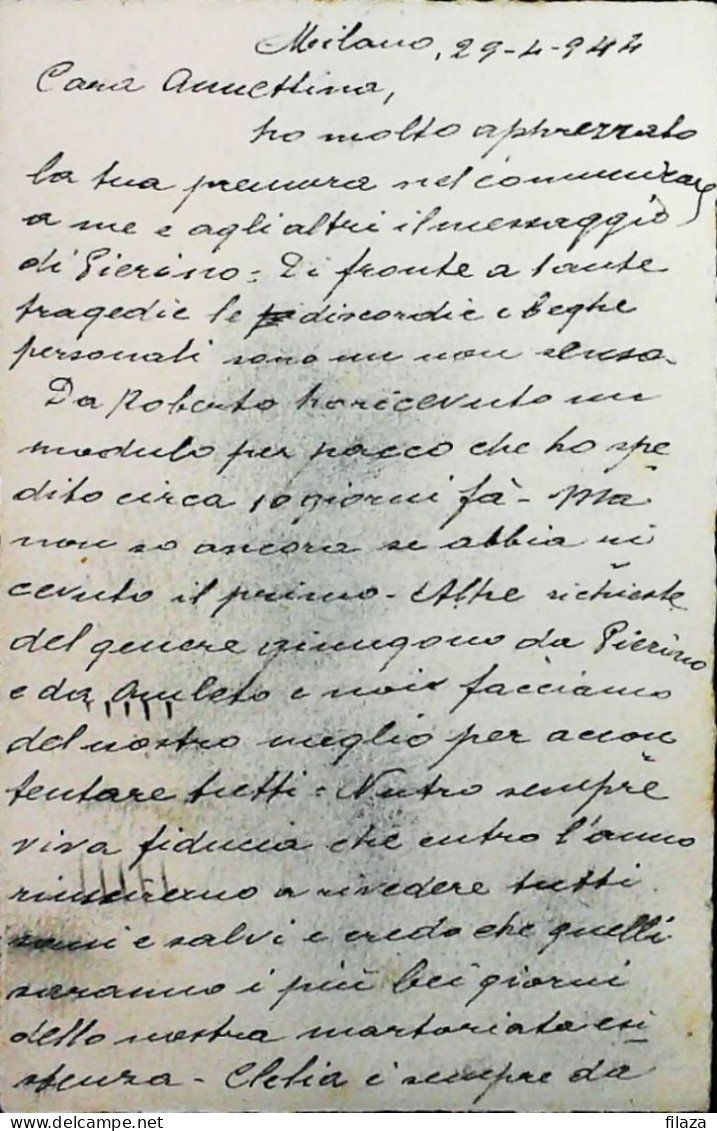 Milano, 29-4-944
Cara Annettina,
ho molto apprezzato
la tua premura nel comunicare
a me e agli altri il messaggio
di Pierino = Di fronte a tante
tragedie le discordie e beghe
personali sono un non senso.
Da Roberto ho ricevuto un
modulo per pacco che ho spe
dito circa 10 giorni fà - Ma
non so ancora se abbia ri
cevuto il primo - Altre richieste
del genere giungono da Pierino
e da Amleto e noi facciamo
del nostro meglio per accon
tentare tutti = Nutro sempre
viva fiducia che entro l'anno
riusciremo a rivedere tutti
sani e salvi e credo che quelli
saranno i più bei giorni
della nostra martoriata esi
stenza - Clelia è sempre da
filaza